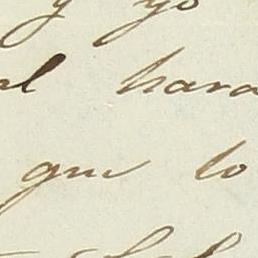 y yo
al hara
que lo